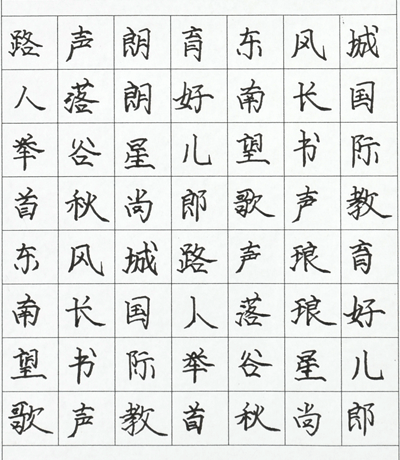 路声朗育东风城
人落朗好南长国
举谷星儿望书际
首秋尚郎歌声教
东风城路声琅育
南长国人落琅好
望书际举谷星儿
歌声教首秋尚郎